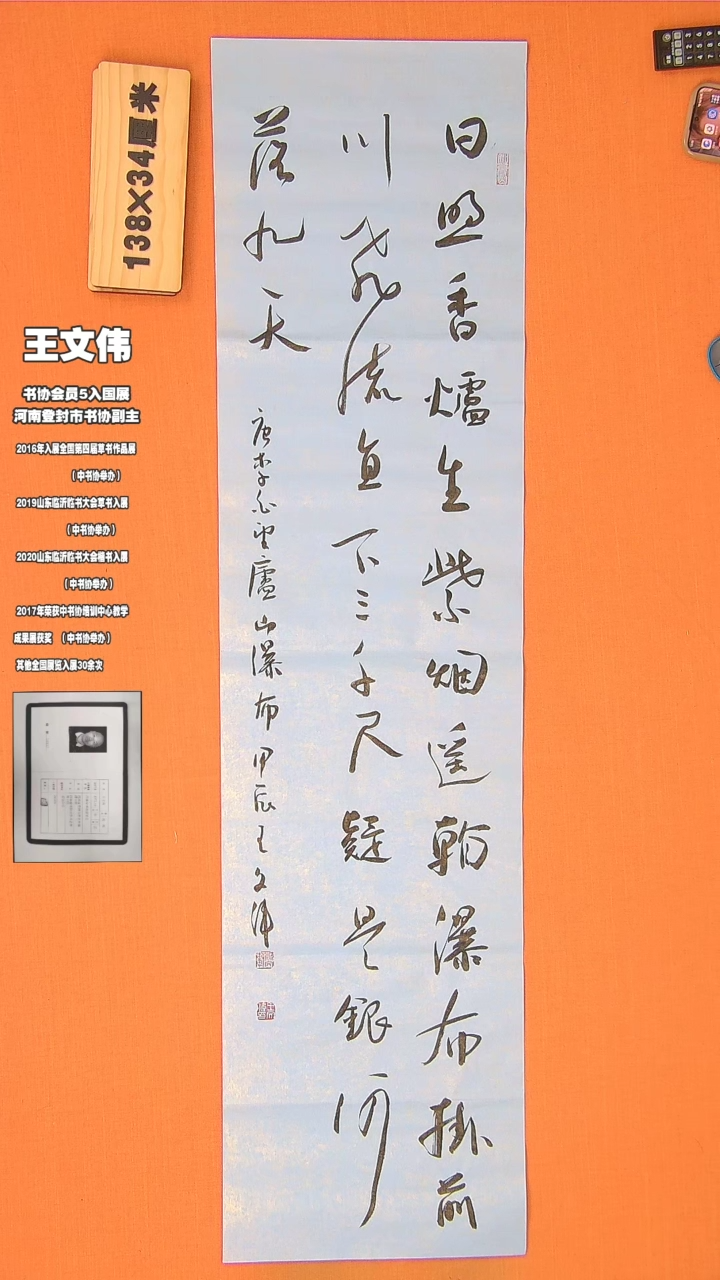 日照香爐生紫烟遥看瀑布掛前
川飛流直下三千尺疑是銀河
落九天
唐李白望廬山瀑布甲辰王文偉
138×34厘米
王文伟
书协会员5入国展
河南登封市书协副主
2016年入展全国第四届草书作品展
（中书协举办）
2019山东临沂临书大会草书入展
（中书协举办）
2020山东临沂临书大会楷书入展
（中书协举办）
2017年荣获中书协培训中心教学
成果展获奖 （中书协举办）
其他全国展览入展30余次